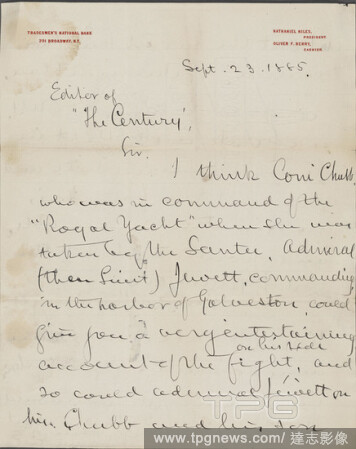 TRADESMEN'S NATIONAL BANK
291 BROADWAY, N.Y.
NATHANIEL NILES,
PRESIDENT
OLIVER F. BERRY,
CASHIER
Sept. 23. 1885.
Editor of
"The Century',
Sir.
I think Com Chubb
who was in command of the
"Royal Yacht" when she was
taken by the Santee, Admiral
(then Lieut) Jewett, commanding
in the harbor of Galveston, could
give you a very entertaining
on his side
account of the fight, and
so could Admiral Jewett on
his. Chubb and his son
TPG
www.tpgnews.com / 達志影像